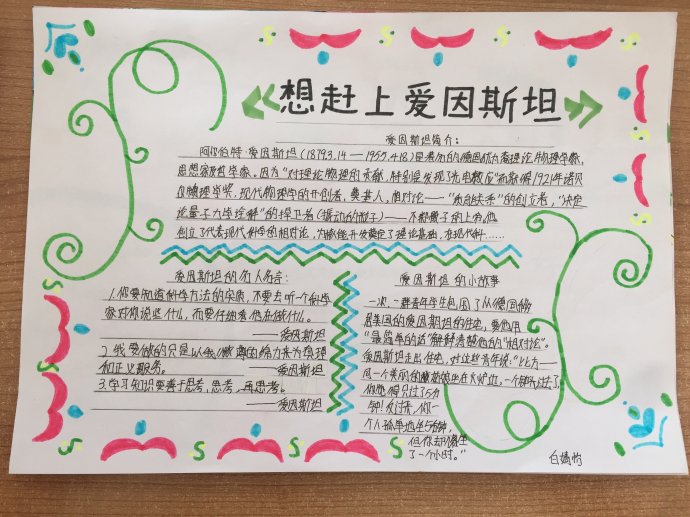 想赶上爱因斯坦
爱因斯坦简介：
阿尔伯特·爱因斯坦（1879.3.14—1955.4.18）是著名的德国犹太裔理论物理学家，
思想家及哲学家。因为“对理论物理的贡献，特别是发现了光电效应”而获得1921年诺贝
尔物理学奖，现代物理学的开创者，奠基人，相对论——“质能关系”的创立者，“决定
论量子力学诠释”的捍卫者（振动的粒子）——不掷骰子的上帝，他
创立了代表现代科学的相对论，为核能开发奠定了理论基础，在现代科……
爱因斯坦的名人名言：
1.你要知道科学方法的实质，不要去听一个科学
家对你说些什么，而要仔细看他在做什么。
——爱因斯坦
2.我要做的只是以我微薄的绵力来为真理
和正义服务。——爱因斯坦
3.学习知识要善于思考，思考，再思考。
——爱因斯坦
爱因斯坦的小故事
一次，一群青年学生包围了从德国移
居美国的爱因斯坦的住宅，要他用
“最简单的话”解释清楚他的“相对论”。
爱因斯坦走出住宅，对这些青年说：“比方——
同一个美丽的姑娘坐在火炉边，一个钟头过去了
你觉得只过了5分
钟！反过来，你一
个人孤单地坐5分钟，
但你却像坐
了一个小时。”